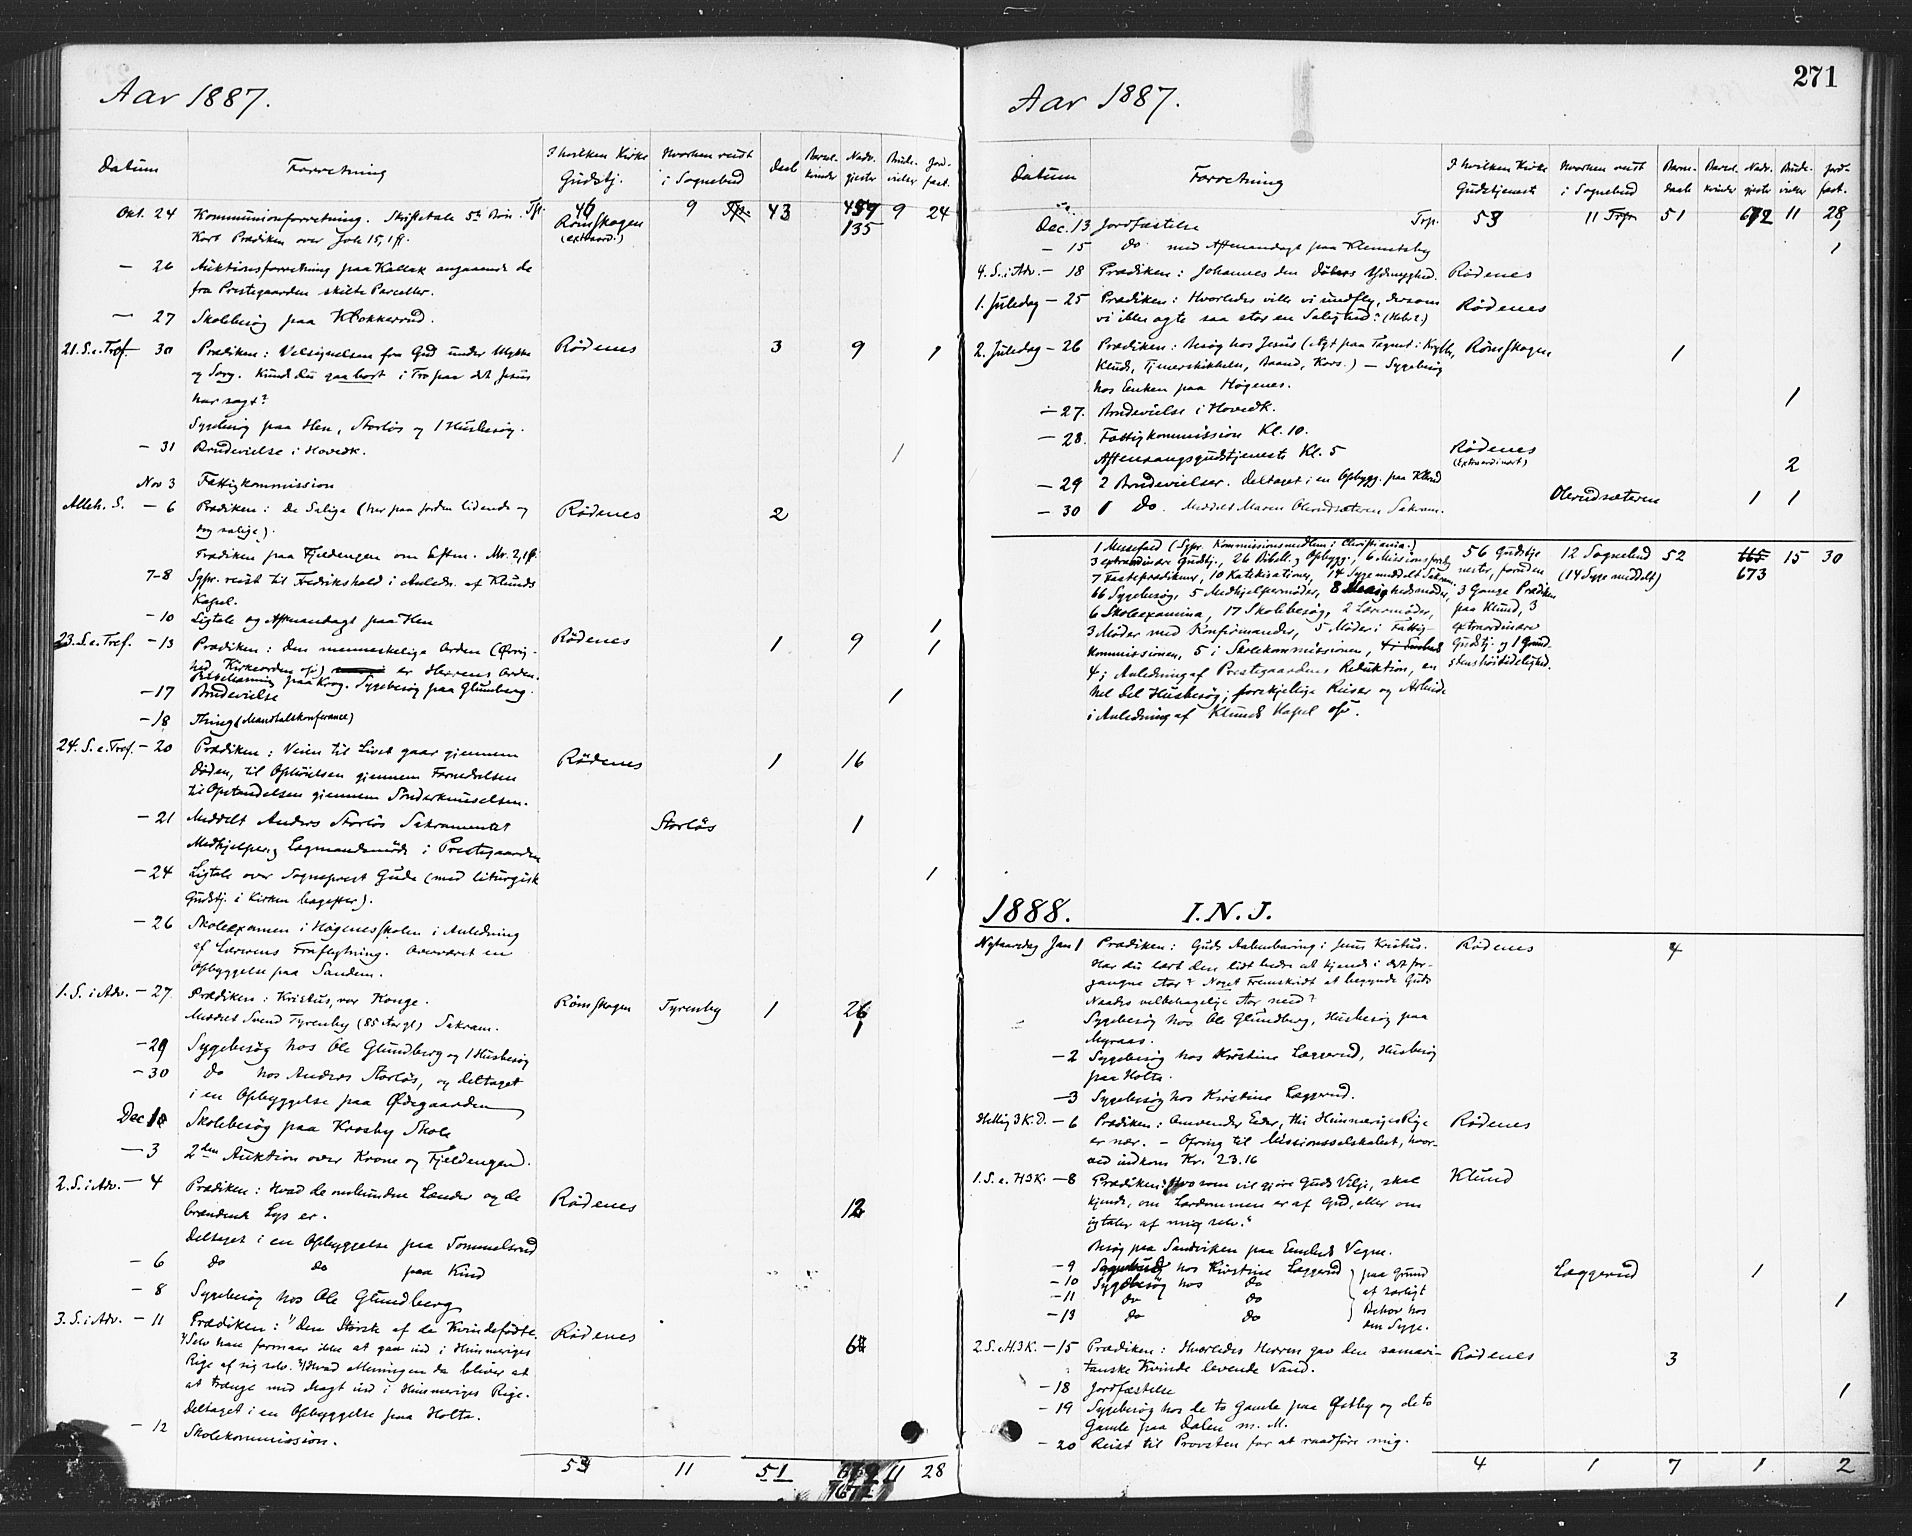 Aar 1887.
Datum Forretning I hvilken Kirke Gudstj. Hvorhen reist i Sognebud Daab Barselkvinder Nadv. gjester Brudevielser Jordfast.
Okt. 24 Kommunionforretning. Skriftetale 5te Bøn. Tp. 46 9 Tp. 43 9 24
Kort Prædiken over Joh. 15,1 ff. Rømskogen 135
(extraord.)
— 26 Auktionsforretning paa Kallak angaaende de
fra Prestegaarden skilte Parceller.
— 27 Skolebesøg paa Klokkerrud.
21. S. e. Tref. 30 Prædiken: Velsignelsen fra Gud under Mykke Rødenes 3 9 1
og Sorg. Kunde du gaa bort i Tro paa det Jesus
har sagt?
Sygebesøg paa Hen, Storløs og 1 Husbesøg.
— 31 Brudevielse i Hovedk. 1
Nov 3 Fattigkommission
Alleh. S. — 6 Prædiken: De Salige (her paa Jorden lidende og Rødenes 2
dog salige).
Prædiken paa Fjeldengen om Eftm. Mr. 2,1 ff.
7-8 Sgpr. reist til Fredrikshald i Anledn. af Klunds
Kapel.
— 10 Ligtale og Aftenandagt paa Hen 1
23. S. e. Tref. — 13 Prædiken: Den menneskelige Orden (Øvrig- Rødenes 1 9 1
hed, Kirkeorden osv) er Herrens Orden.
paa Krog. Sygebesøg paa Glundberg.
— 17 Brudevielse 1
— 18 Thing (Mandtalskonferance)
24. S. e. Tref. — 20 Prædiken: Veien til Livet gaar gjennem Rødenes 1 16
Døden, til Ophøielsen gjennem Fornedrelsen
til Opstandelsen gjennem Sønderknuselsen.
— 21 Meddelt Anders Storløs Sakramentet Storløs 1
Medhjelper og Lagmandsmøde i Prestegaarden
— 24 Ligtale over Sogneprest Gude (med liturgisk 1
Gudstj. i Kirken bagefter).
— 26 Skoleexamen i Høgenesskolen i Anledning
af Lærerens Fraflytning. Overværet en
Opbyggelse paa Sandem.
1. S. i Adv. — 27 Prædiken: Kristus, vor Konge. Rømskogen Tyrenby 1 26
Meddelt Svend Tyrenby (85 Aar gl) Sakram. 1
— 29 Sygebesøg hos Ole Glundberg og 1 Husbesøg
— 30 do hos Anders Storløs, og deltaget
i en Opbyggelse paa Ødegaarden
Dec 1 Skolebesøg paa Krosby Skole
— 3 2den Auktion over Krone og Fjeldengen.
2. S. i Adv. — 4 Prædiken: Hvad de ombundne Lænder og de Rødenes 12
brændende Lys er.
Deltaget i en Opbyggelse paa Tommelsrud
— 6 do do paa Kind
— 8 Sygebesøg hos Ole Glundberg
3. S. i Adv. — 11 Prædiken: 1) Den Største af de Kvindefødte. Rødenes 6
2) Selv han formaar ikke at gaa ind i Himmeriges
Rige af sig selv. 3) Hvad Meningen da bliver at
at trænge med Magt ind i Himmeriges Rige.
Deltaget i en Opbyggelse paa Holta.
— 12 Skolekommission.
53 11 51 11 28
671
271
Aar 1887.
Datum Forretning I hvilken Kirke Gudstjeneste Hvorhen reist i Sognebud Barnedaab Barselkvinder Nadv. gjester Brudevielser Jordfast.
Dec. 13 Jordfæstelse Trp. 53 11 Trp. 51 672 11 28
— 15 do med Aftenandagt paa Klemetsby 1
4. S. i Adv. — 18 Prædiken: Johannes den Døbers Ydmyghed. Rødenes
1. Juledag — 25 Prædiken: Hvorledes ville vi undfly, dersom Rødenes
vi ikke agte saa stor en Salighed? (Hebr 2.)
2. Juledag — 26 Prædiken: Besøg hos Jesus (Agt paa Tegnet: Krybbe, Rømskogen 1
Klude, Tjenerskikkelse, Baand, Kors.) — Sygebesøg
hos Enken paa Høgenes.
— 27. Brudevielse i Hovedk. 1
— 28. Fattigkommission Kl. 10.
Aftensangsgudstjeneste Kl. 5 Rødenes
(Extraordinært)
— 29 2 Brudevielser. Deltaget i en Opbygg. paa Klund 2
— 30 1 Do. Meddelt Maren Olerudsæteren Sakram. Olerudsæteren 1 1
1 Messefald (Sgpr. Kommissionsmedlem i Christiania.) 56 Gudstje 12 Sognebud 52 665 15 30
3 extraordinære Gudstj., 26 Bibell. og Opbygg., 6 Missionsforedr. nester, foruden (14 Syge meddelt) 673
7 Fasteprædikener, 10 Katekisationer, 14 Syge meddelt Sakram. 3 Gange Prædiken
66 Sygebesøg, 5 Medhjelpermøder, 8 Menighedsmøder, paa Klund, 3
6 Skoleexamina, 17 Skolebesøg, 2 Lærermøder, extraordinære
3 Møder med Konfirmander, 5 Møder i Fattig- Gudstj. og 1 Grund-
kommissionen, 5 i Skolekommissionen, stenshøitidelighed.
4 i Anledning af Prestegaardens Reduktion, en
hel Del Husbesøg; forskjellige Reiser og Arbeide
i Anledning af Klunds Kapel osv.
1888. I.N.J.
Nytaarsdag Jan 1 Prædiken: Guds Aabenbaring i Jesus Kristus. Rødenes 4
Har du lært den lidt bedre at kjende i det for-
gangne Aar? Noget Fremskridt at begynde Guds
Naades velbehagelige Aar med?
Sygebesøg hos Ole Glundberg, Husbesøg paa
Myraas.
— 2 Sygebesøg hos Kristine Læggerud, Husbesøg
paa Holta.
— 3 Sygebesøg hos Kirstine Læggerud.
Hellig 3 K. D. — 6 Prædiken: Omvender Eder, thi Himmeriges Rige Rødenes
er nær. — Ofring til Missionsselskabet, hvor-
ved indkom Kr. 23.16
1. S. e. H3K. — 8 Prædiken: Hvo som vil gjøre Guds Vilje, skal Klund
kjende, om Lærdommen er af Gud, eller om
jeg taler af mig selv."
Besøg paa Sandviken paa Embeds Vegne.
— 9 Sognebud hos Kirstine Læggerud paa Grund Læggerud 1
— 10 Sygebesøg hos do af særligt
— 11 do do Behov hos 1
— 13 do do den Syge.
2 S. e. H.3K. — 15 Prædiken: Hvorledes Herren gav den samari- Rødenes 3
tanske Kvinde levende Vand.
— 18 Jordfæstelse 1
— 19 Sygebesøg hos de to Gamle paa Østby og de to
Gamle paa Dalen m. M.
— 20 Reist til Provsten for at raadføre mig.
4 1 7 1 2